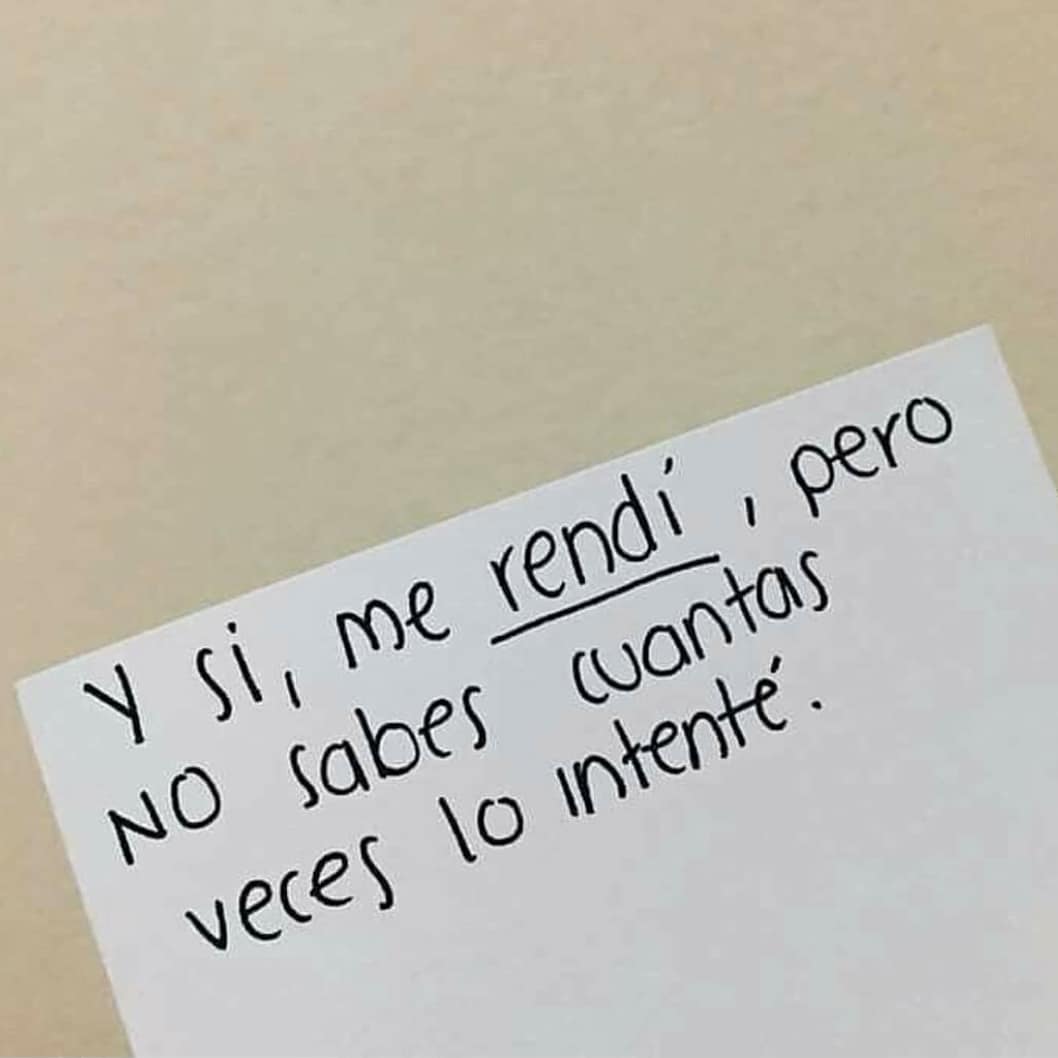 Y si, me rendí, pero
NO sabes cuantas
veces lo intenté.